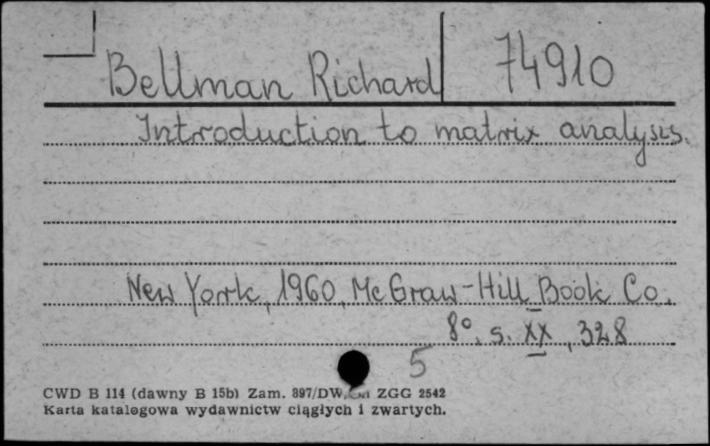 Bellman Richard 74910
Introduction to matrix analysis.
New York, 1960, Mc Graw-Hill Book Co.
8°, s. XX, 328
5
CWD B 114 (dawny B 15b) Zam. 897/DW, ZGG 2542
Karta katalogowa wydawnictw ciągłych i zwartych.